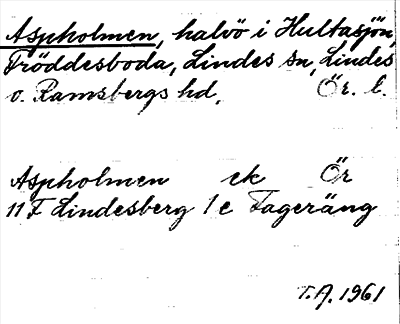 Aspholmen, halvö i Hultasjön,
Fröddesboda, Lindes sn, Lindes
o. Ramsbergs hd, Ör. l.
Aspholmen ek Ör
11 F Lindesberg 1 e Fageräng
T.A. 1961